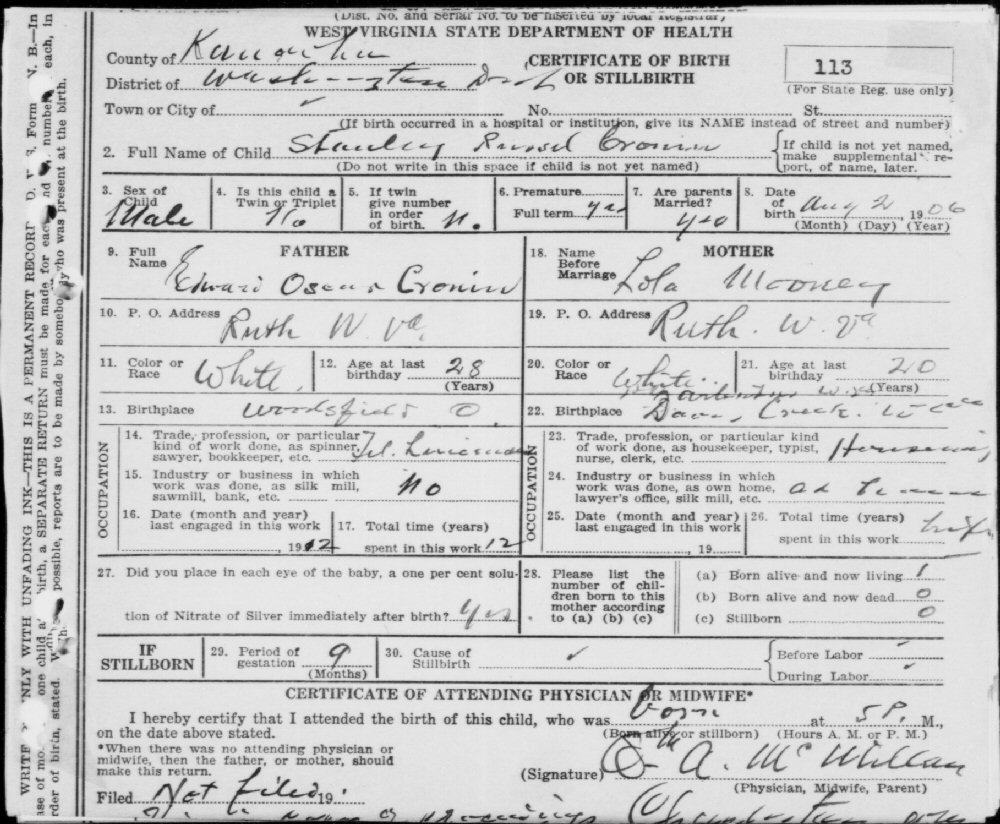 (Dist. No. and Serial No. to be inserted by local Registrar)
WEST VIRGINIA STATE DEPARTMENT OF HEALTH
County of Kanawha
CERTIFICATE OF BIRTH
OR STILLBIRTH
113
(For State Reg. use only)
District of Washington Dist
Town or City of No. St.
(If birth occurred in a hospital or institution, give its NAME instead of street and number)
2. Full Name of Child Stanley Russel Cronin
(Do not write in this space if child is not yet named)
If child is not yet named, make supplemental report, of name, later.
3. Sex of Child Male
4. Is this child a Twin or Triplet No
5. If twin give number in order of birth. No.
6. Premature
Full term yes
7. Are parents Married? yes
8. Date of birth Aug 2, 1906
(Month) (Day) (Year)
FATHER
9. Full Name Edward Oscar Cronin
10. P. O. Address Ruth W. Va.
11. Color or Race White.
12. Age at last birthday 28
(Years)
13. Birthplace Woodsfield O
OCCUPATION
14. Trade, profession, or particular kind of work done, as spinner, sawyer, bookkeeper, etc. Tel. Lineman
15. Industry or business in which work was done, as silk mill, sawmill, bank, etc. No
16. Date (month and year) last engaged in this work , 1912
17. Total time (years) spent in this work 12
MOTHER
18. Name Before Marriage Lola Mooney
19. P. O. Address Ruth. W. Va
20. Color or Race White
21. Age at last birthday 20
(Years)
22. Birthplace Davis Creek. W Va
OCCUPATION
23. Trade, profession, or particular kind of work done, as housekeeper, typist, nurse, clerk, etc. Housewife
24. Industry or business in which work was done, as own home, lawyer's office, silk mill, etc.
25. Date (month and year) last engaged in this work , 19
26. Total time (years) spent in this work
27. Did you place in each eye of the baby, a one per cent solution of Nitrate of Silver immediately after birth? Yes
28. Please list the number of children born to this mother according to (a) (b) (c)
(a) Born alive and now living 1
(b) Born alive and now dead 0
(c) Stillborn 0
IF STILLBORN
29. Period of gestation 9
(Months)
30. Cause of Stillbirth
Before Labor
During Labor
CERTIFICATE OF ATTENDING PHYSICIAN OR MIDWIFE*
I hereby certify that I attended the birth of this child, who was born at 5 P. M.,
on the date above stated. (Born alive or stillborn) (Hours A. M. or P. M.)
*When there was no attending physician or
midwife, then the father, or mother, should
make this return.
(Signature) A. McMillan
(Physician, Midwife, Parent)
Filed Not filed 19